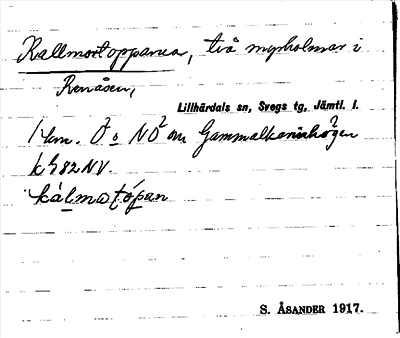 Kallmortopparna, två myrholmar i
Renåsen,
Lillhärdals sn, Svegs tg, Jämtl. l.
1 km. Ö o NO om Gammalkerinhögen
k 382 NV.
kálmatópan
S. ÅSANDER 1917.